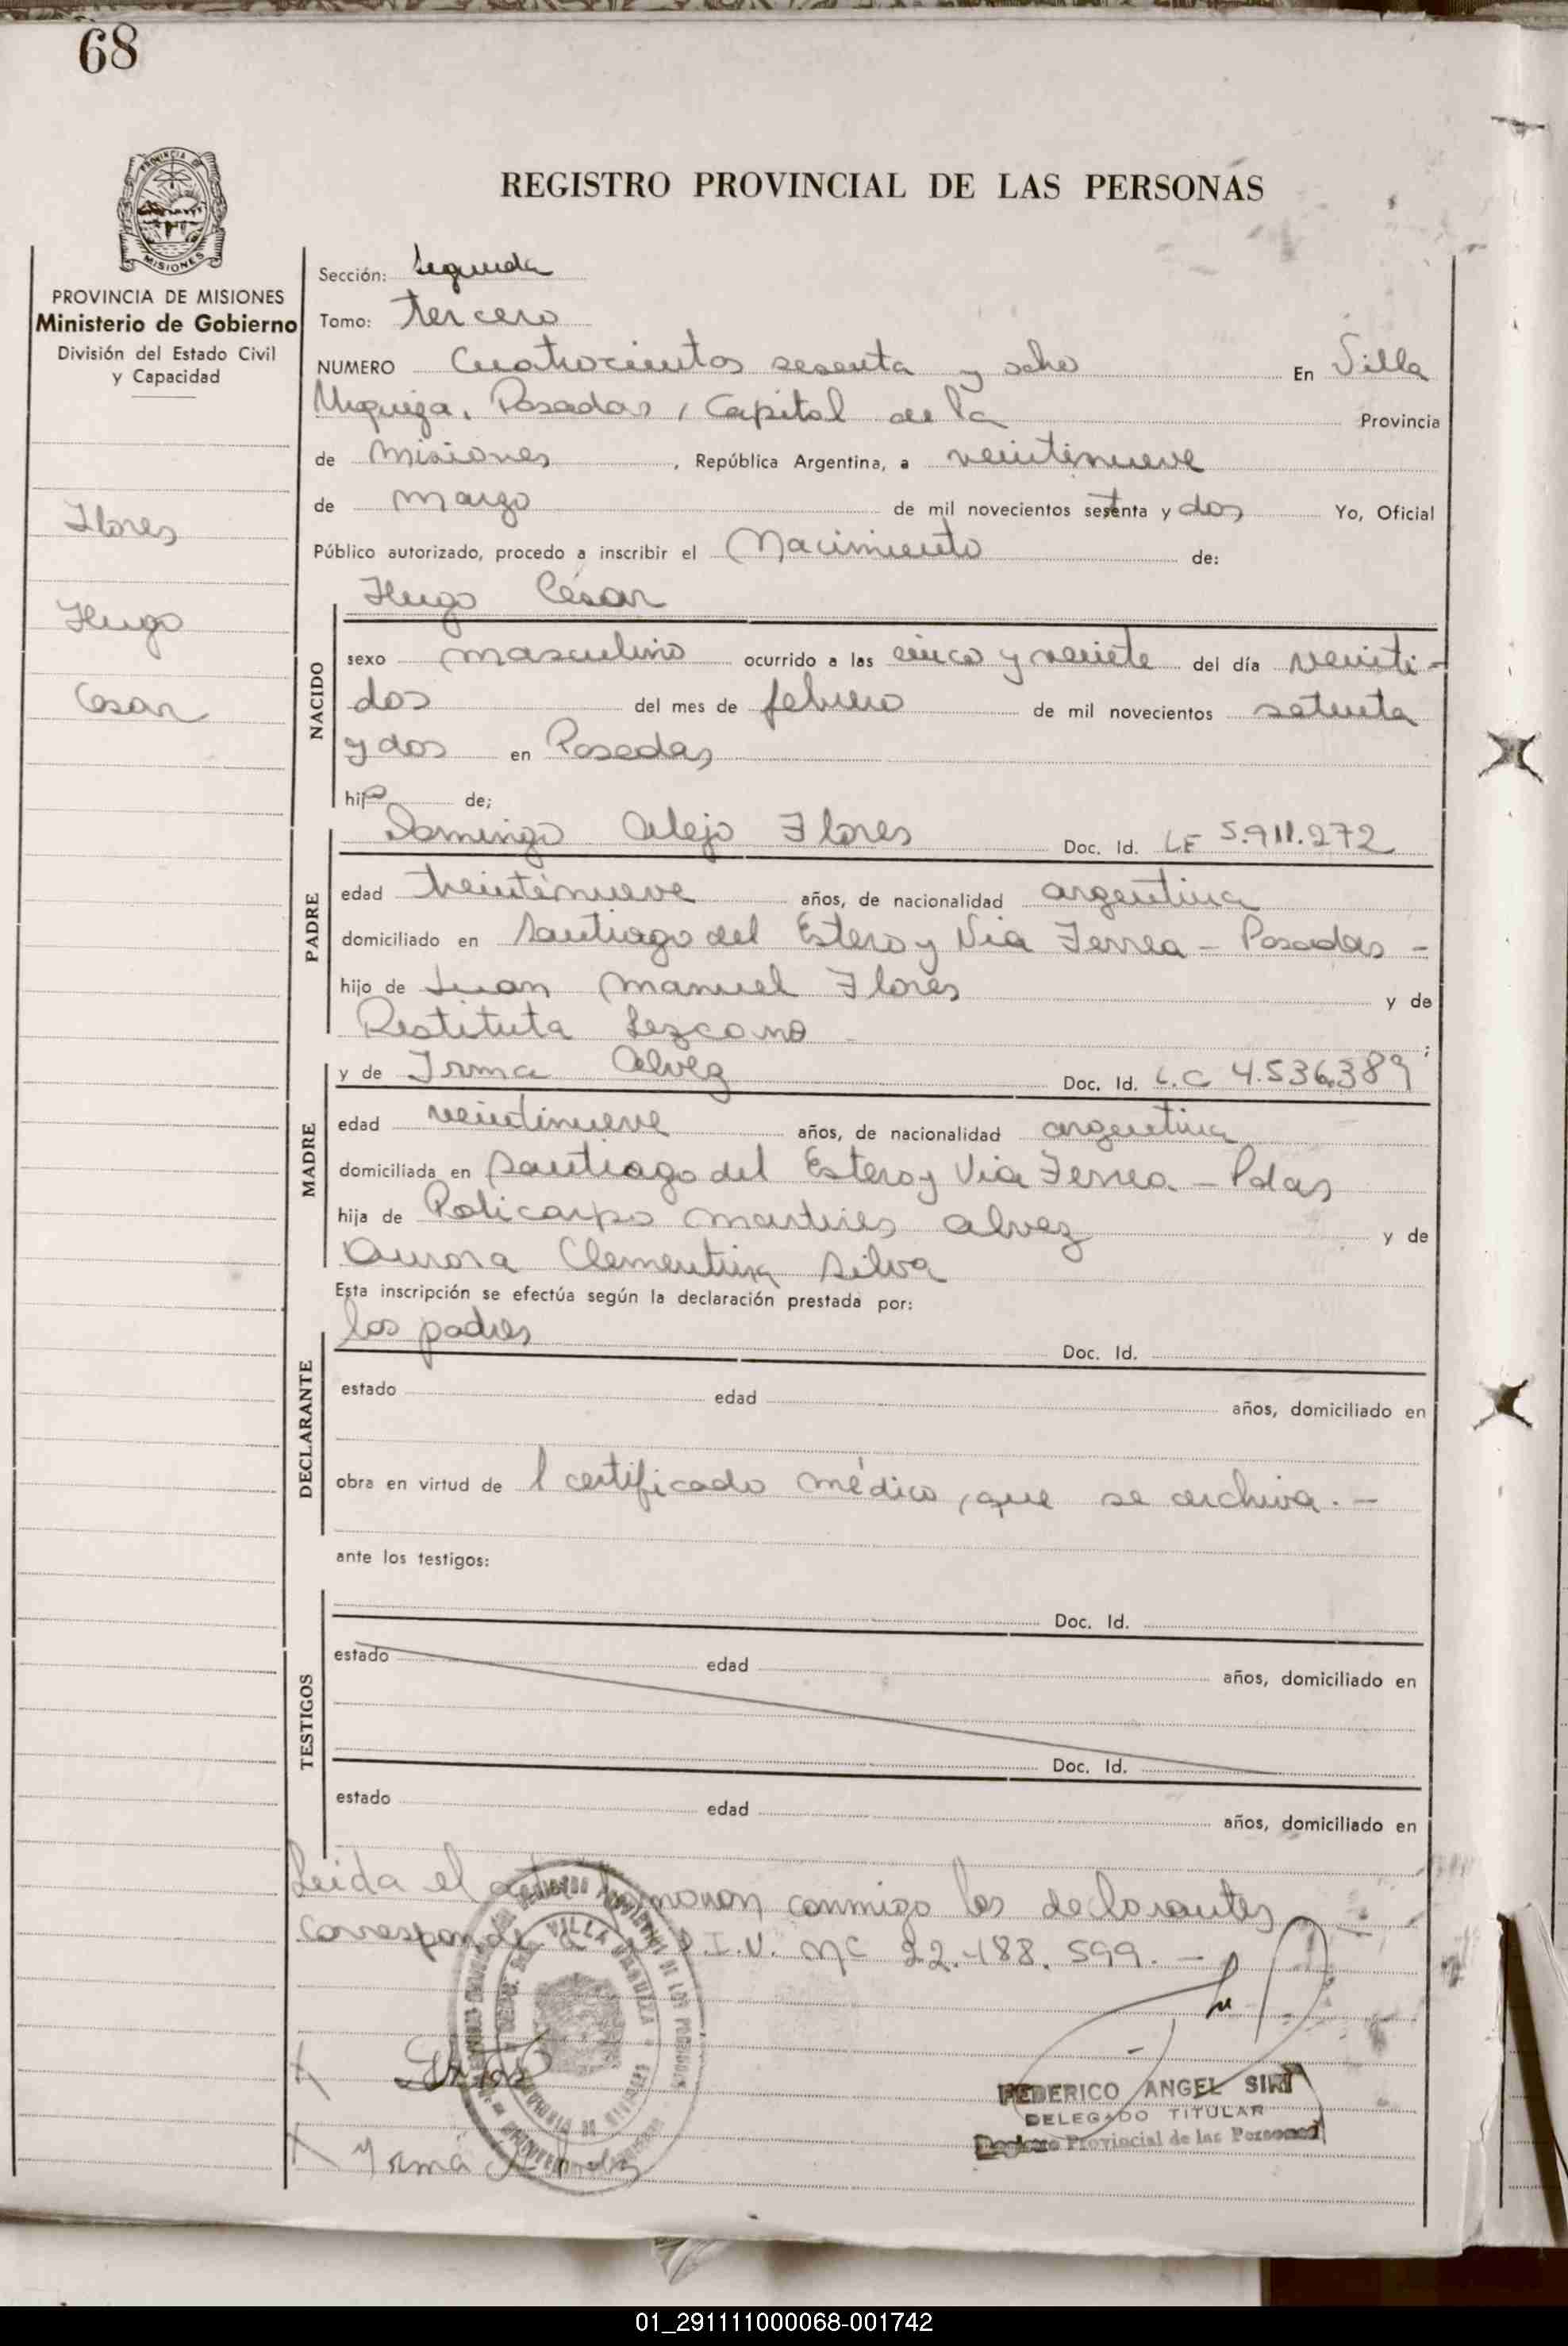 68
REGISTRO PROVINCIAL DE LAS PERSONAS
PROVINCIA DE
MISIONES
PROVINCIA DE MISIONES
Ministerio de Gobierno
División del Estado Civil
y Capacidad
Flores
Hugo
Cesar
Sección: Segunda
Tomo: tercero
NUMERO Cuatrocientos sesenta y ocho En Villa
Urquiza, Posadas, Capital de la Provincia
de Misiones, República Argentina, a veintinueve
de marzo de mil novecientos setenta y dos Yo, Oficial
Público autorizado, procedo a inscribir el Nacimiento de:
Hugo César
NACIDO
sexo masculino ocurrido a las cinco y veinte del día veinti-
dos del mes de febrero de mil novecientos setenta
y dos en Posadas
hijo de;
Domingo Alejo Flores Doc. Id. LE 5.911.272
PADRE
edad treintinueve años, de nacionalidad argentina
domiciliado en Santiago del Estero y Via Ferrea - Posadas -
hijo de Juan Manuel Flores y de
Restituta Lezcano ;
y de Irma Alvez Doc. Id. L.C 4.536.389
MADRE
edad veintinueve años, de nacionalidad argentina
domiciliada en Santiago del Estero y Via Ferrea - Pdas
hija de Policarpo Martires Alvez y de
Aurora Clementina Silva
Esta inscripción se efectúa según la declaración prestada por:
los padres Doc. Id.
DECLARANTE
estado edad años, domiciliado en
obra en virtud de 1 certificado médico, que se archiva. -
ante los testigos:
Doc. Id.
TESTIGOS
estado edad años, domiciliado en
Doc. Id.
estado edad años, domiciliado en
Leida el conmigo los declarantes
corresponde D.I.U. Nº 22.488.599. -
VILLA URQUIZA
Irma
FEDERICO ANGEL
DELEGADO TITULAR
Provincial de las Personas
01_291111000068-001742